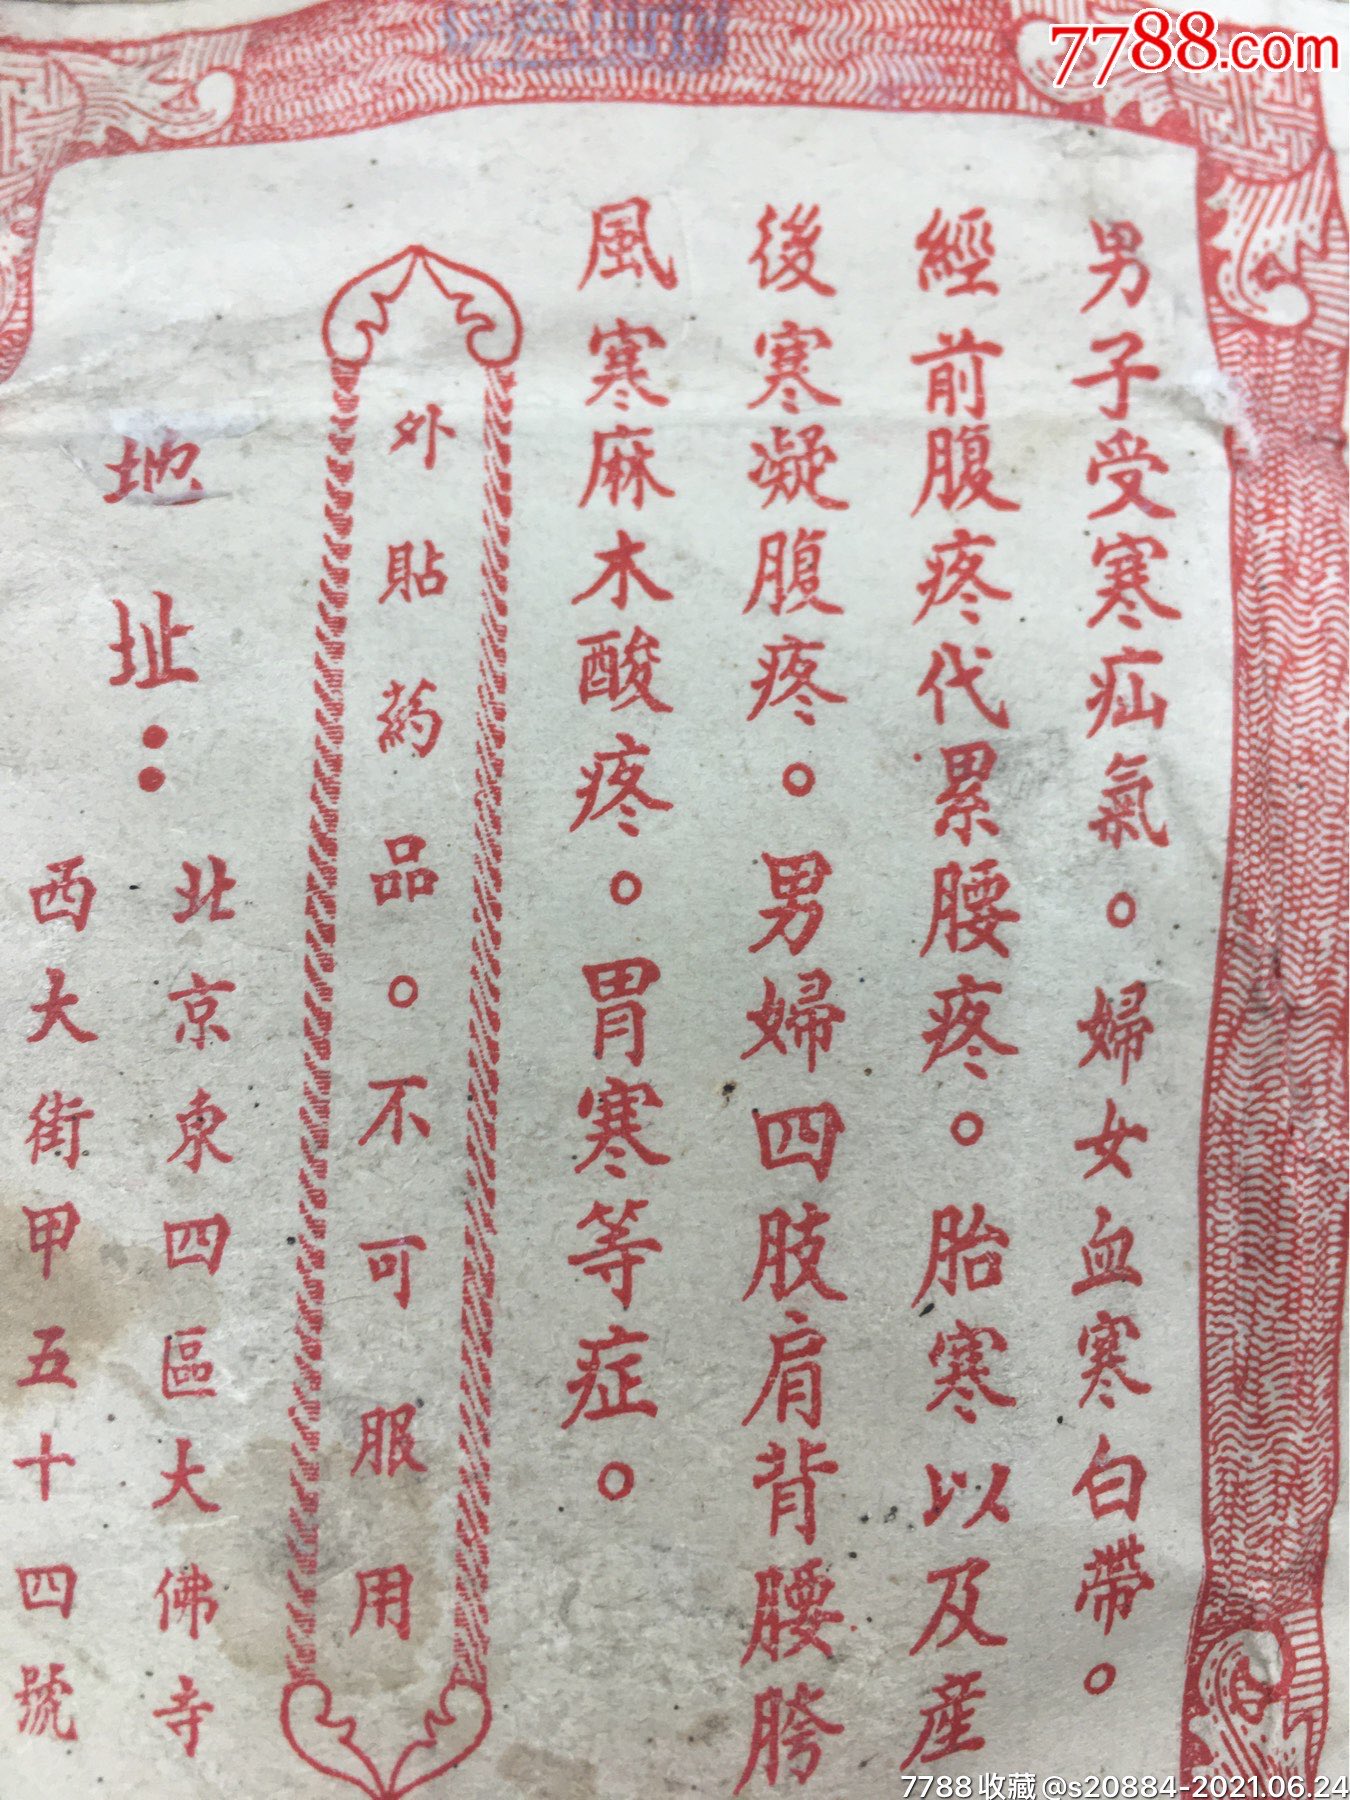 7788.com
男子受寒疝氣。婦女血寒白帶。
經前腹疼代累腰疼。胎寒以及産
後寒凝腹疼。男婦四肢肩背腰胯
風寒麻木酸疼。胃寒等症。
外貼葯品。不可服用
地址：
北京東四區大佛寺
西大街甲五十四號
7788收藏@s20884-2021.06.24